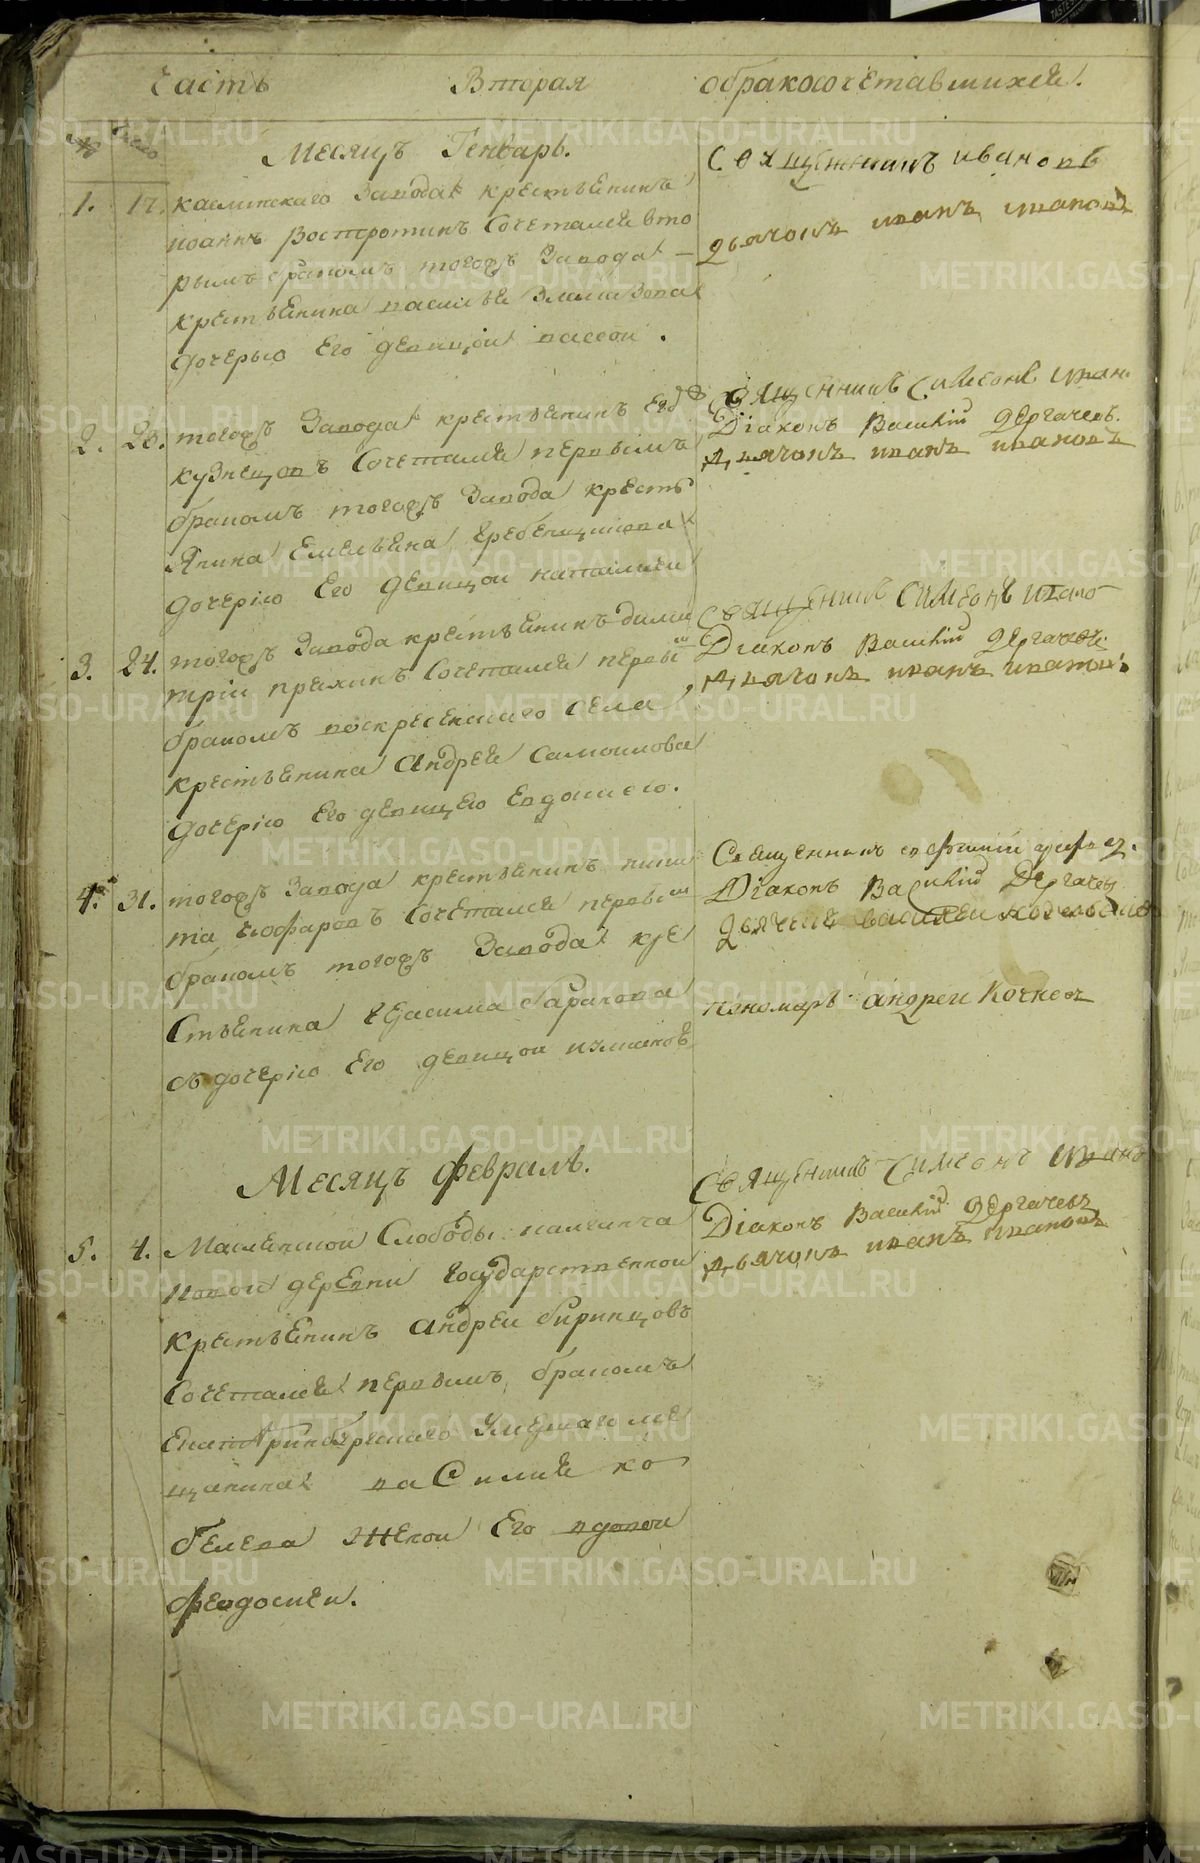 часть Вторая обракосочетавшихся.
№ Число
Месяцъ Генварь.
1. 17. каслинскаго Завода крестьянинъ
иоаннъ Востротинъ Сочетался вто
рымъ бракомъ тогожъ Завода
крестьянина василья
дочерью Его девицой вассой.
Священникъ ивановъ
дьячокъ иванъ ивановъ
2. тогожъ Завода крестьянинъ
кузнецовъ Сочетался первымъ
бракомъ тогожъ Завода кресть
янина Емельяна гребенщикова
дочерію Его девицой наталией
Священникъ Симеонъ иван
Діаконъ Василій дергачевъ.
дьячокъ иванъ ивановъ
3. 24. тогожъ Завода крестьянинъ дими
трій Сочетался первы
бракомъ воскресенскаго села
крестьянина андрея Самоилова
дочерію Его девицею Евдокиею.
Священникъ Симеонъ ивано
Діаконъ Василій дергачевъ
дьячокъ иванъ ивановъ
4. 31. тогожъ Завода крестьянинъ ники
та Сочетался первы
бракомъ тогожъ Завода кре
стьянина герасима баранова
съ дочерію Его девицой
Священникъ
Діаконъ Василій Дергачев
дьячекъ василей
пономарь андреи Кочнев
Месяцъ февраль.
5. 4. Маслянской Слободы
новой деревни государственной
крестьянинъ андреи
Сочетался первымъ бракомъ
Екатеринбургскаго уезднаго ме
щанина василия ко
белева женой Его вдовой
феодосией.
Священникъ Симеонъ ивано
Діаконъ Василій дергачевъ
дьячокъ иванъ ивановъ
METRIKI.GASO-URAL.RU